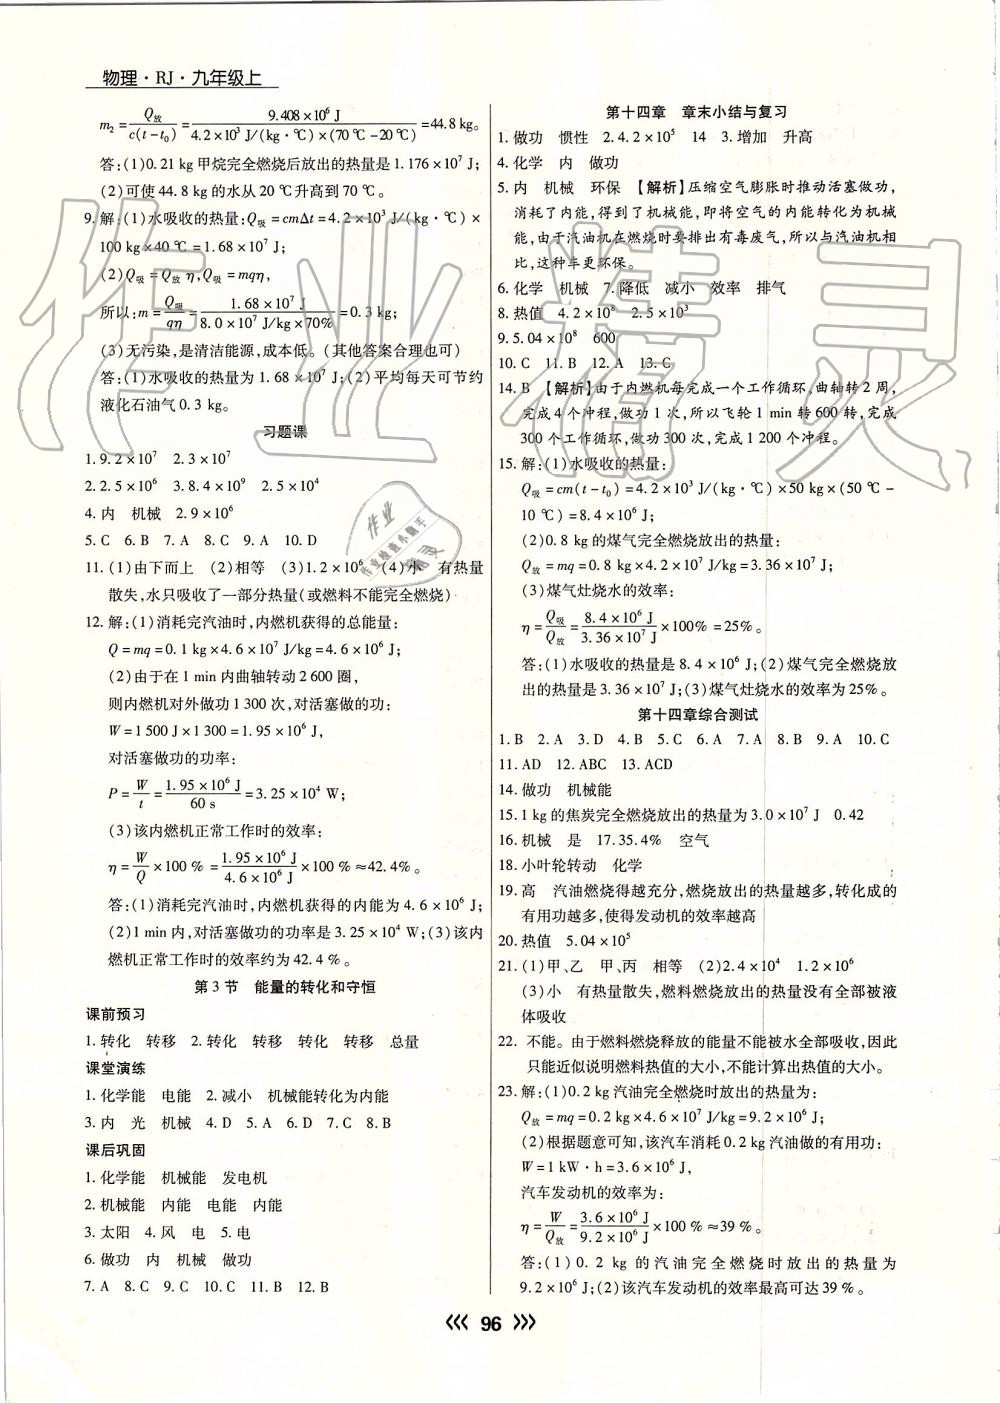 物理·RJ·九年级上
m₂=Q放/c(t-t₀)=9.408×10⁶ J/4.2×10³ J/(kg·℃)×(70 ℃-20 ℃)=44.8 kg。
答:(1)0.21 kg 甲烷完全燃烧后放出的热量是 1.176×10⁷ J;
(2)可使 44.8 kg 的水从 20 ℃升高到 70 ℃。
9.解:(1)水吸收的热量:Q吸=cmΔt=4.2×10³ J/(kg·℃)×
100 kg×40 ℃=1.68×10⁷ J;
(2)Q吸=Q放η,Q吸=mqη,
所以:m=Q吸/qη=1.68×10⁷ J/8.0×10⁷ J/kg×70%=0.3 kg;
(3)无污染,是清洁能源,成本低。(其他答案合理也可)
答:(1)水吸收的热量为 1.68×10⁷ J;(2)平均每天可节约
液化石油气 0.3 kg。
习题课
1.9.2×10⁷ 2.3×10⁷
2.2.5×10⁶ 3.8.4×10⁹ 2.5×10⁴
4.内 机械 2.9×10⁶
5.C 6.B 7.A 8.C 9.A 10.D
11.(1)由下而上 (2)相等 (3)1.2×10⁶ (4)小 有热量
散失,水只吸收了一部分热量(或燃料不能完全燃烧)
12.解:(1)消耗完汽油时,内燃机获得的总能量:
Q=mq=0.1 kg×4.6×10⁷ J/kg=4.6×10⁶ J;
(2)由于在 1 min 内曲轴转动 2 600 圈,
则内燃机对外做功 1 300 次,对活塞做的功:
W=1 500 J×1 300=1.95×10⁶ J,
对活塞做功的功率:
P=W/t=1.95×10⁶ J/60 s=3.25×10⁴ W;
(3)该内燃机正常工作时的效率:
η=W/Q×100 %=1.95×10⁶ J/4.6×10⁶ J×100 %≈42.4%。
答:(1)消耗完汽油时,内燃机获得的内能为 4.6×10⁶ J;
(2)1 min 内,对活塞做功的功率是 3.25×10⁴ W;(3)该内
燃机正常工作时的效率约为 42.4 %。
第 3 节 能量的转化和守恒
课前预习
1.转化 转移 2.转化 转移 转化 转移 总量
课堂演练
1.化学能 电能 2.减小 机械能转化为内能
3.内 光 机械 4.D 5.A 6.D 7.C 8.B
课后巩固
1.化学能 机械能 发电机
2.机械能 内能 电能 内能
3.太阳 4.风 电 5.电
6.做功 内 机械 做功
7.A 8.C 9.C 10.C 11.B 12.B
第十四章 章末小结与复习
1.做功 惯性 2.4.2×10⁵ 14 3.增加 升高
4.化学 内 做功
5.内 机械 环保 【解析】压缩空气膨胀时推动活塞做功,
消耗了内能,得到了机械能,即将空气的内能转化为机械
能,由于汽油机在燃烧时要排出有毒废气,所以与汽油机相
比,这种车更环保。
6.化学 机械 7.降低 减小 效率 排气
8.热值 4.2×10⁸ 2.5×10³
9.5.04×10⁸ 600
10.C 11.B 12.A 13.C
14.B 【解析】由于内燃机每完成一个工作循环,曲轴转 2 周,
完成 4 个冲程,做功 1 次,所以飞轮 1 min 转 600 转,完成
300 个工作循环,做功 300 次,完成 1 200 个冲程。
15.解:(1)水吸收的热量:
Q吸=cm(t-t₀)=4.2×10³ J/(kg·℃)×50 kg×(50 ℃-
10 ℃)=8.4×10⁶ J;
(2)0.8 kg 的煤气完全燃烧放出的热量:
Q放=mq=0.8 kg×4.2×10⁷ J/kg=3.36×10⁷ J;
(3)煤气灶烧水的效率:
η=Q吸/Q放=8.4×10⁶ J/3.36×10⁷ J×100%=25%。
答:(1)水吸收的热量是 8.4×10⁶ J;(2)煤气完全燃烧放
出的热量是 3.36×10⁷ J;(3)煤气灶烧水的效率为 25%。
第十四章综合测试
1.B 2.A 3.D 4.B 5.C 6.A 7.A 8.B 9.A 10.C
11.AD 12.ABC 13.ACD
14.做功 机械能
15.1 kg 的焦炭完全燃烧放出的热量为 3.0×10⁷ J 0.42
16.机械 是 17.35.4% 空气
18.小叶轮转动 化学
19.高 汽油燃烧得越充分,燃烧放出的热量越多,转化成的
有用功越多,使得发动机的效率越高
20.热值 5.04×10⁵
21.(1)甲、乙 甲、丙 相等 (2)2.4×10⁴ 1.2×10⁵
(3)小 有热量散失,燃料燃烧放出的热量没有全部被液
体吸收
22. 不能。由于燃料燃烧释放的能量不能被水全部吸收,因此
只能近似说明燃料热值的大小,不能计算出热值的大小。
23.解:(1)0.2 kg 汽油完全燃烧时放出的热量为:
Q放=mq=0.2 kg×4.6×10⁷ J/kg=9.2×10⁶ J;
(2)根据题意可知,该汽车消耗 0.2 kg 汽油做的有用功:
W=1 kW·h=3.6×10⁶ J,
汽车发动机的效率为:
η=W/Q放=3.6×10⁶ J/9.2×10⁶ J×100 %≈39 %。
答:(1) 0.2 kg 的汽油完全燃烧时放出的热量为
9.2×10⁶ J;(2)该汽车发动机的效率最高可达 39 %。
96
作业精灵
作业
作业检查小助手
精灵